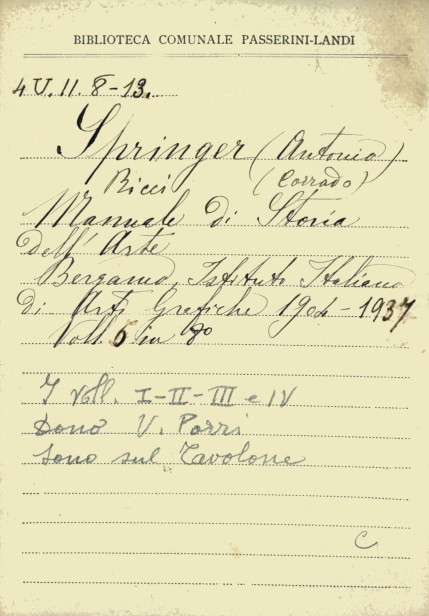 BIBLIOTECA COMUNALE PASSERINI-LANDI
4 U. II. 8-13.
Springer (Antonio)
Ricci (Corrado)
Manuale di Storia
dell'Arte
Bergamo, Istituto Italiano
di Arti Grafiche 1904-1937
Voll. 6 in 8º
I voll. I-II-III e IV
Dono V. Porri
sono sul Tavolone
C